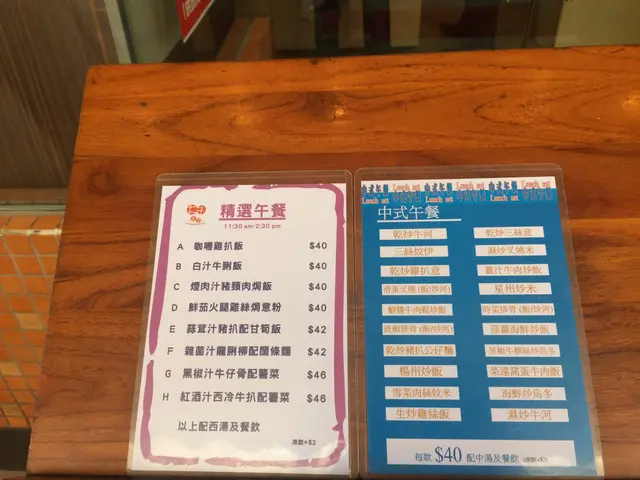 精選午餐
11:30 am-2:30 pm
A 咖喱雞扒飯 $40
B 白汁牛脷飯 $40
C 煙肉汁豬頸肉焗飯 $40
D 鮮茄火腿雞絲焗意粉 $40
E 蒜茸汁豬扒配甘筍飯 $42
F 雜菌汁龍脷柳配闊條麵 $42
G 黑椒汁牛仔骨配薯菜 $46
H 紅酒汁西冷牛扒配薯菜 $46
以上配西湯及餐飲
凍飲+$2
中式午餐 Lunch set 中式午餐 Lunch set
中式午餐
乾炒牛河 乾炒三絲意
三絲炆伊 濕炒叉燒米
乾炒雞扒意 薑汁牛肉炒飯
滑蛋叉燒(飯/炒河) 星州炒米
蝦醬牛肉鬆炒飯 時菜排骨(飯/炒河)
豉椒排骨(飯/炒河) 菠蘿海鮮炒飯
乾炒豬扒公仔麵 黑椒牛柳絲炒烏冬
楊州炒飯 菜遠窩蛋牛肉飯
雪菜肉絲炆米 海鮮炒烏冬
生炒雞絲飯 濕炒牛河
每款 $40 配中湯及餐飲 (凍飲+$2)